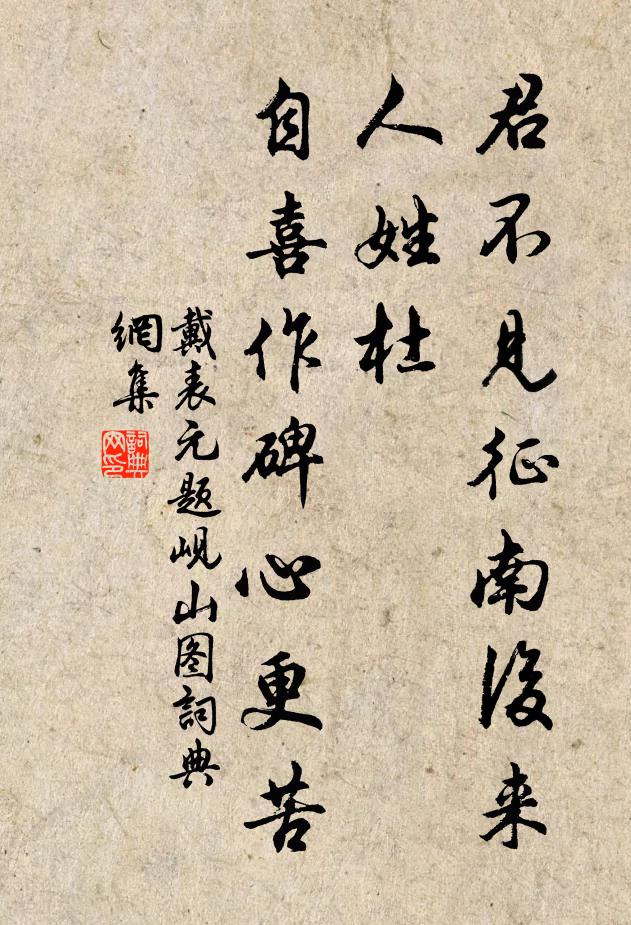 君不見征南後来
人姓杜
自喜作碑心更苦
戴表元题岘山图詞典
網集
詞典
网印